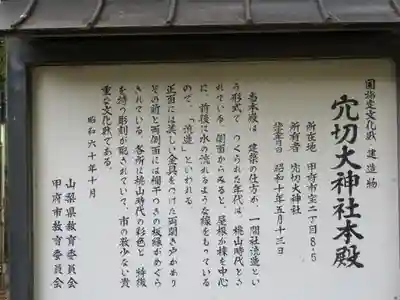 国指定文化財 建造物
穴切大神社本殿
所在地 甲府市宝二丁目8-5
所有者 穴切大神社
指定日 昭和十年五月十三日
当本殿は、建築の仕方が、一間社流造とい
う形式で、つくられた年代は、桃山時代とさ
れている。側面からみると、屋根が棟を中心
に、前後に水の流れるような線をもっている
ので、「流造」といわれる
正面には美しい金具をつけた両開き戸があり
その前と両側面には欄干つきの板縁がめぐら
されている。各所に桃山時代の彩色と、特徴
を持つ彫刻が配されていて、市の数少ない貴
重な文化財である。
昭和六十年十月
山梨県教育委員会
甲府市教育委員会